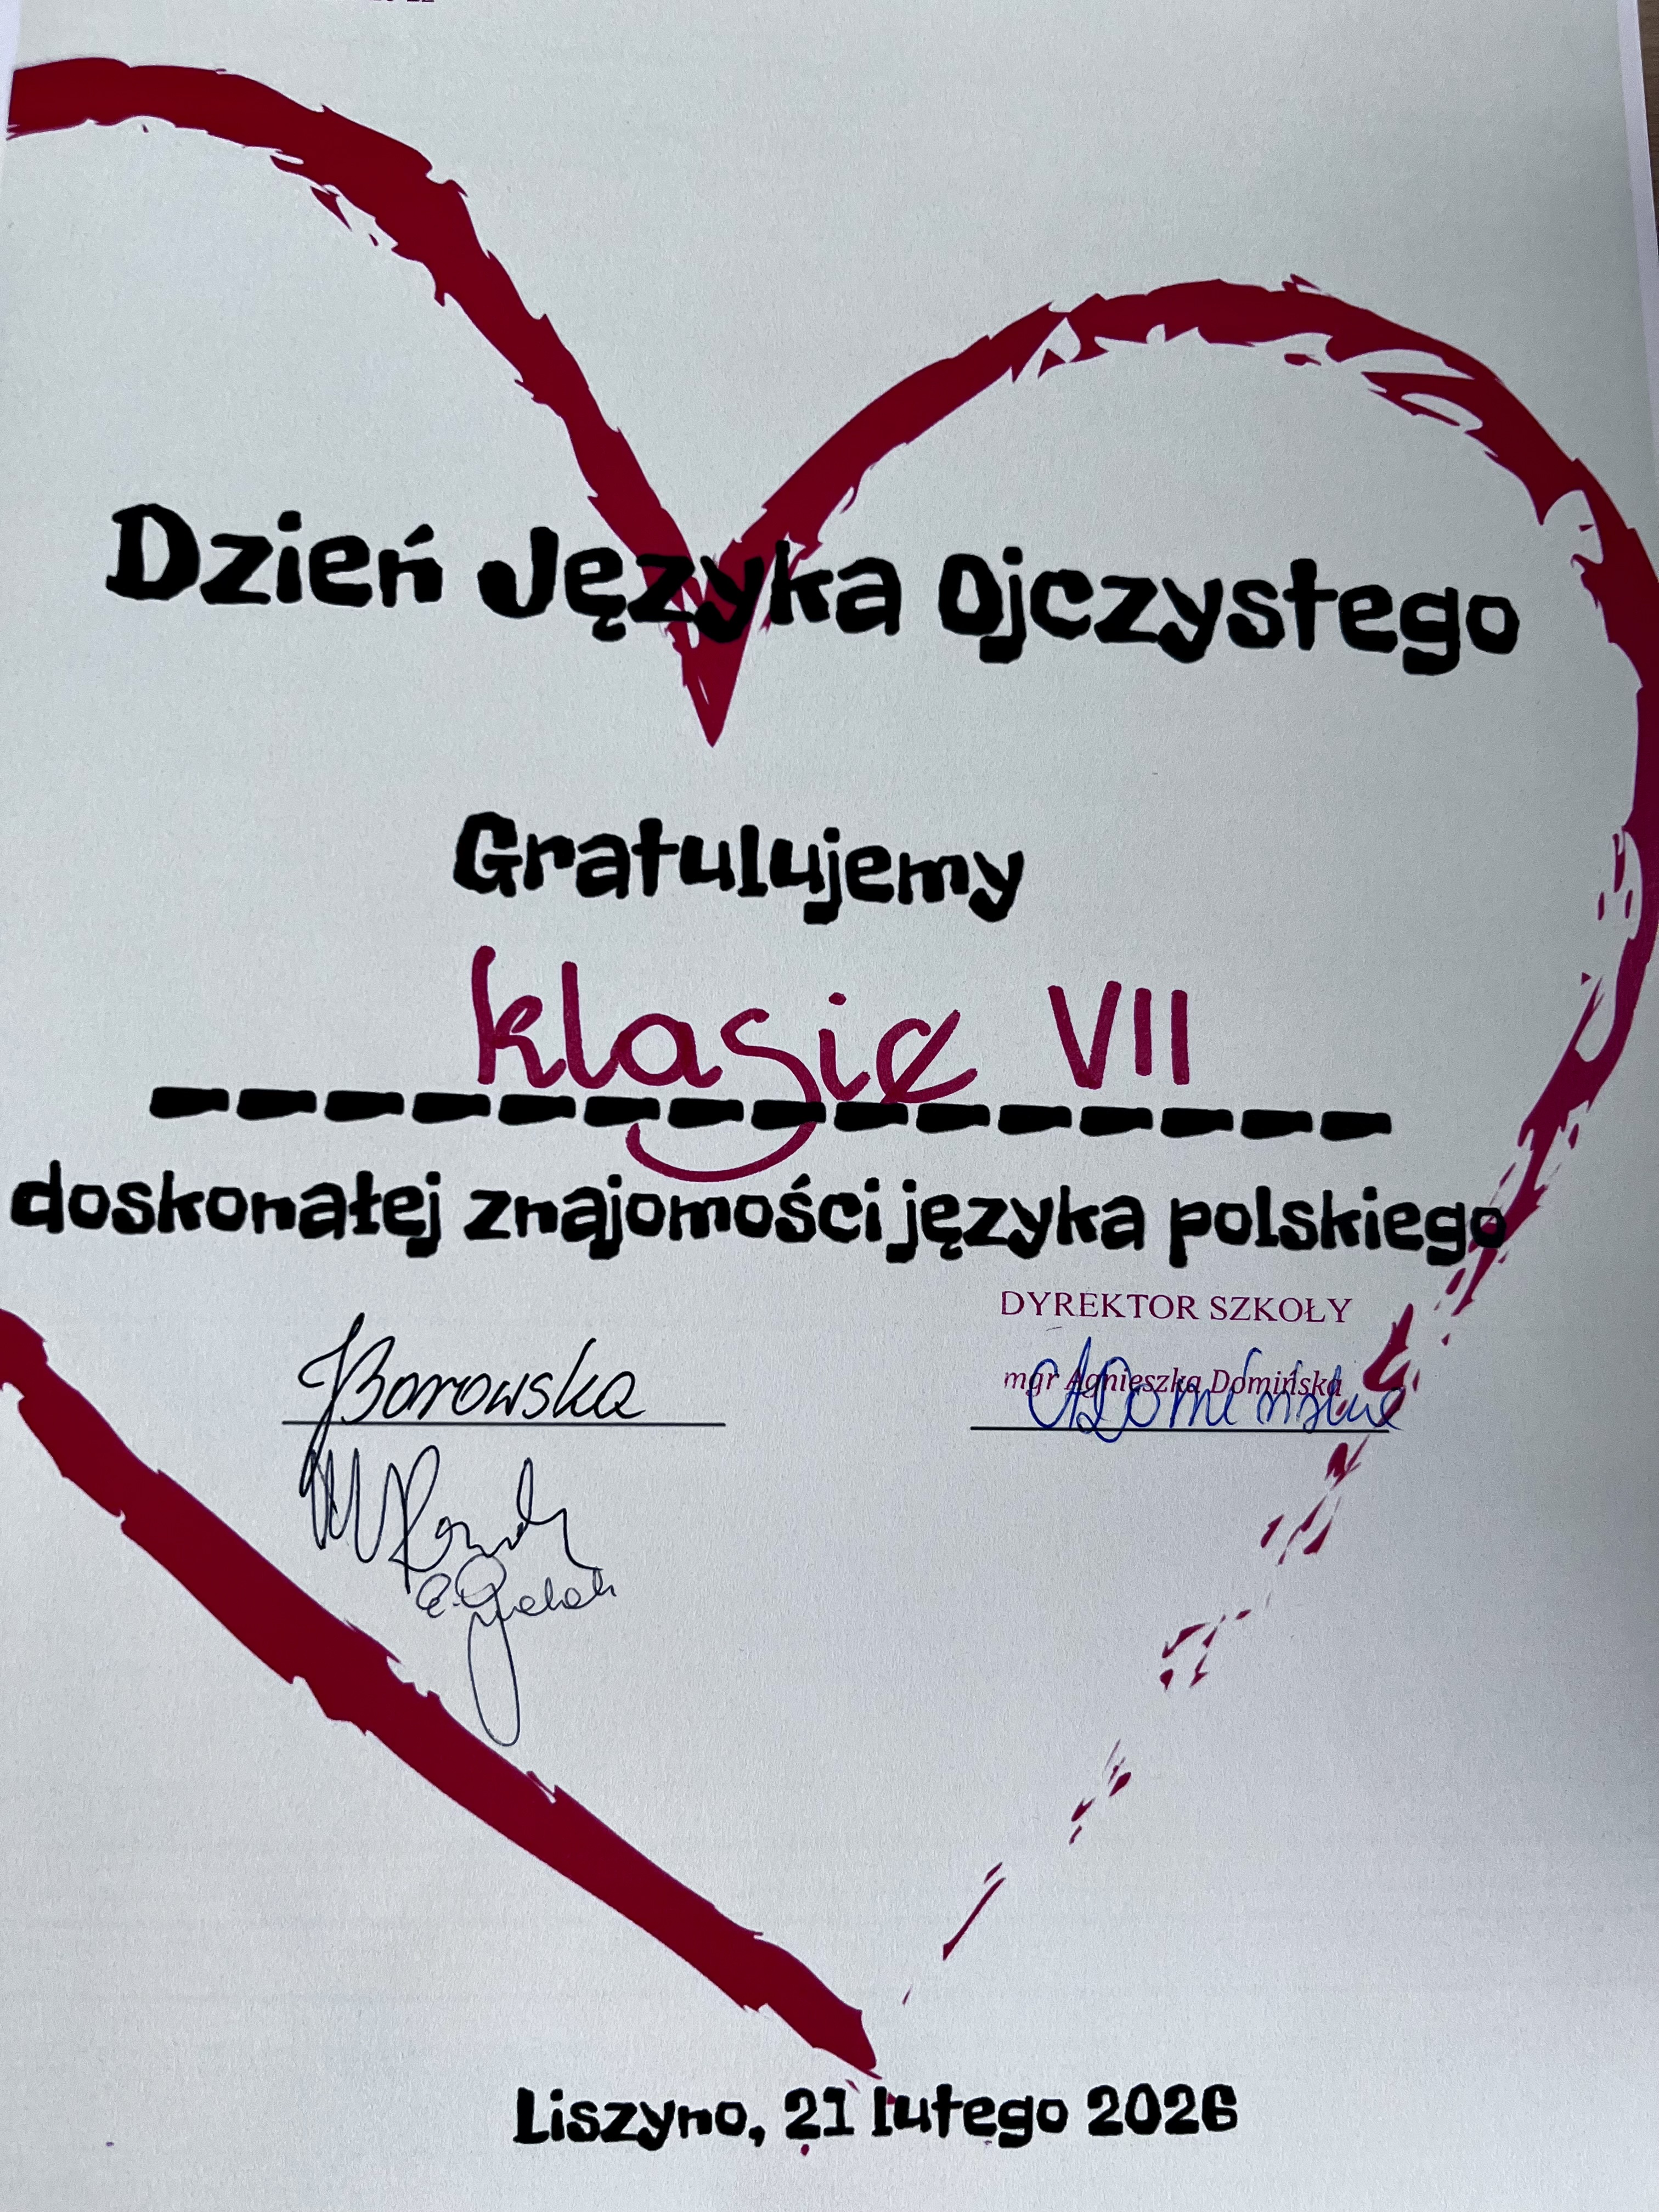 Dzień Języka Ojczystego
Gratulujemy
klasie VII
doskonałej znajomości języka polskiego
DYREKTOR SZKOŁY
mgr Agnieszka Domińska
JBorowska
ADomińska
Liszyno, 21 lutego 2026